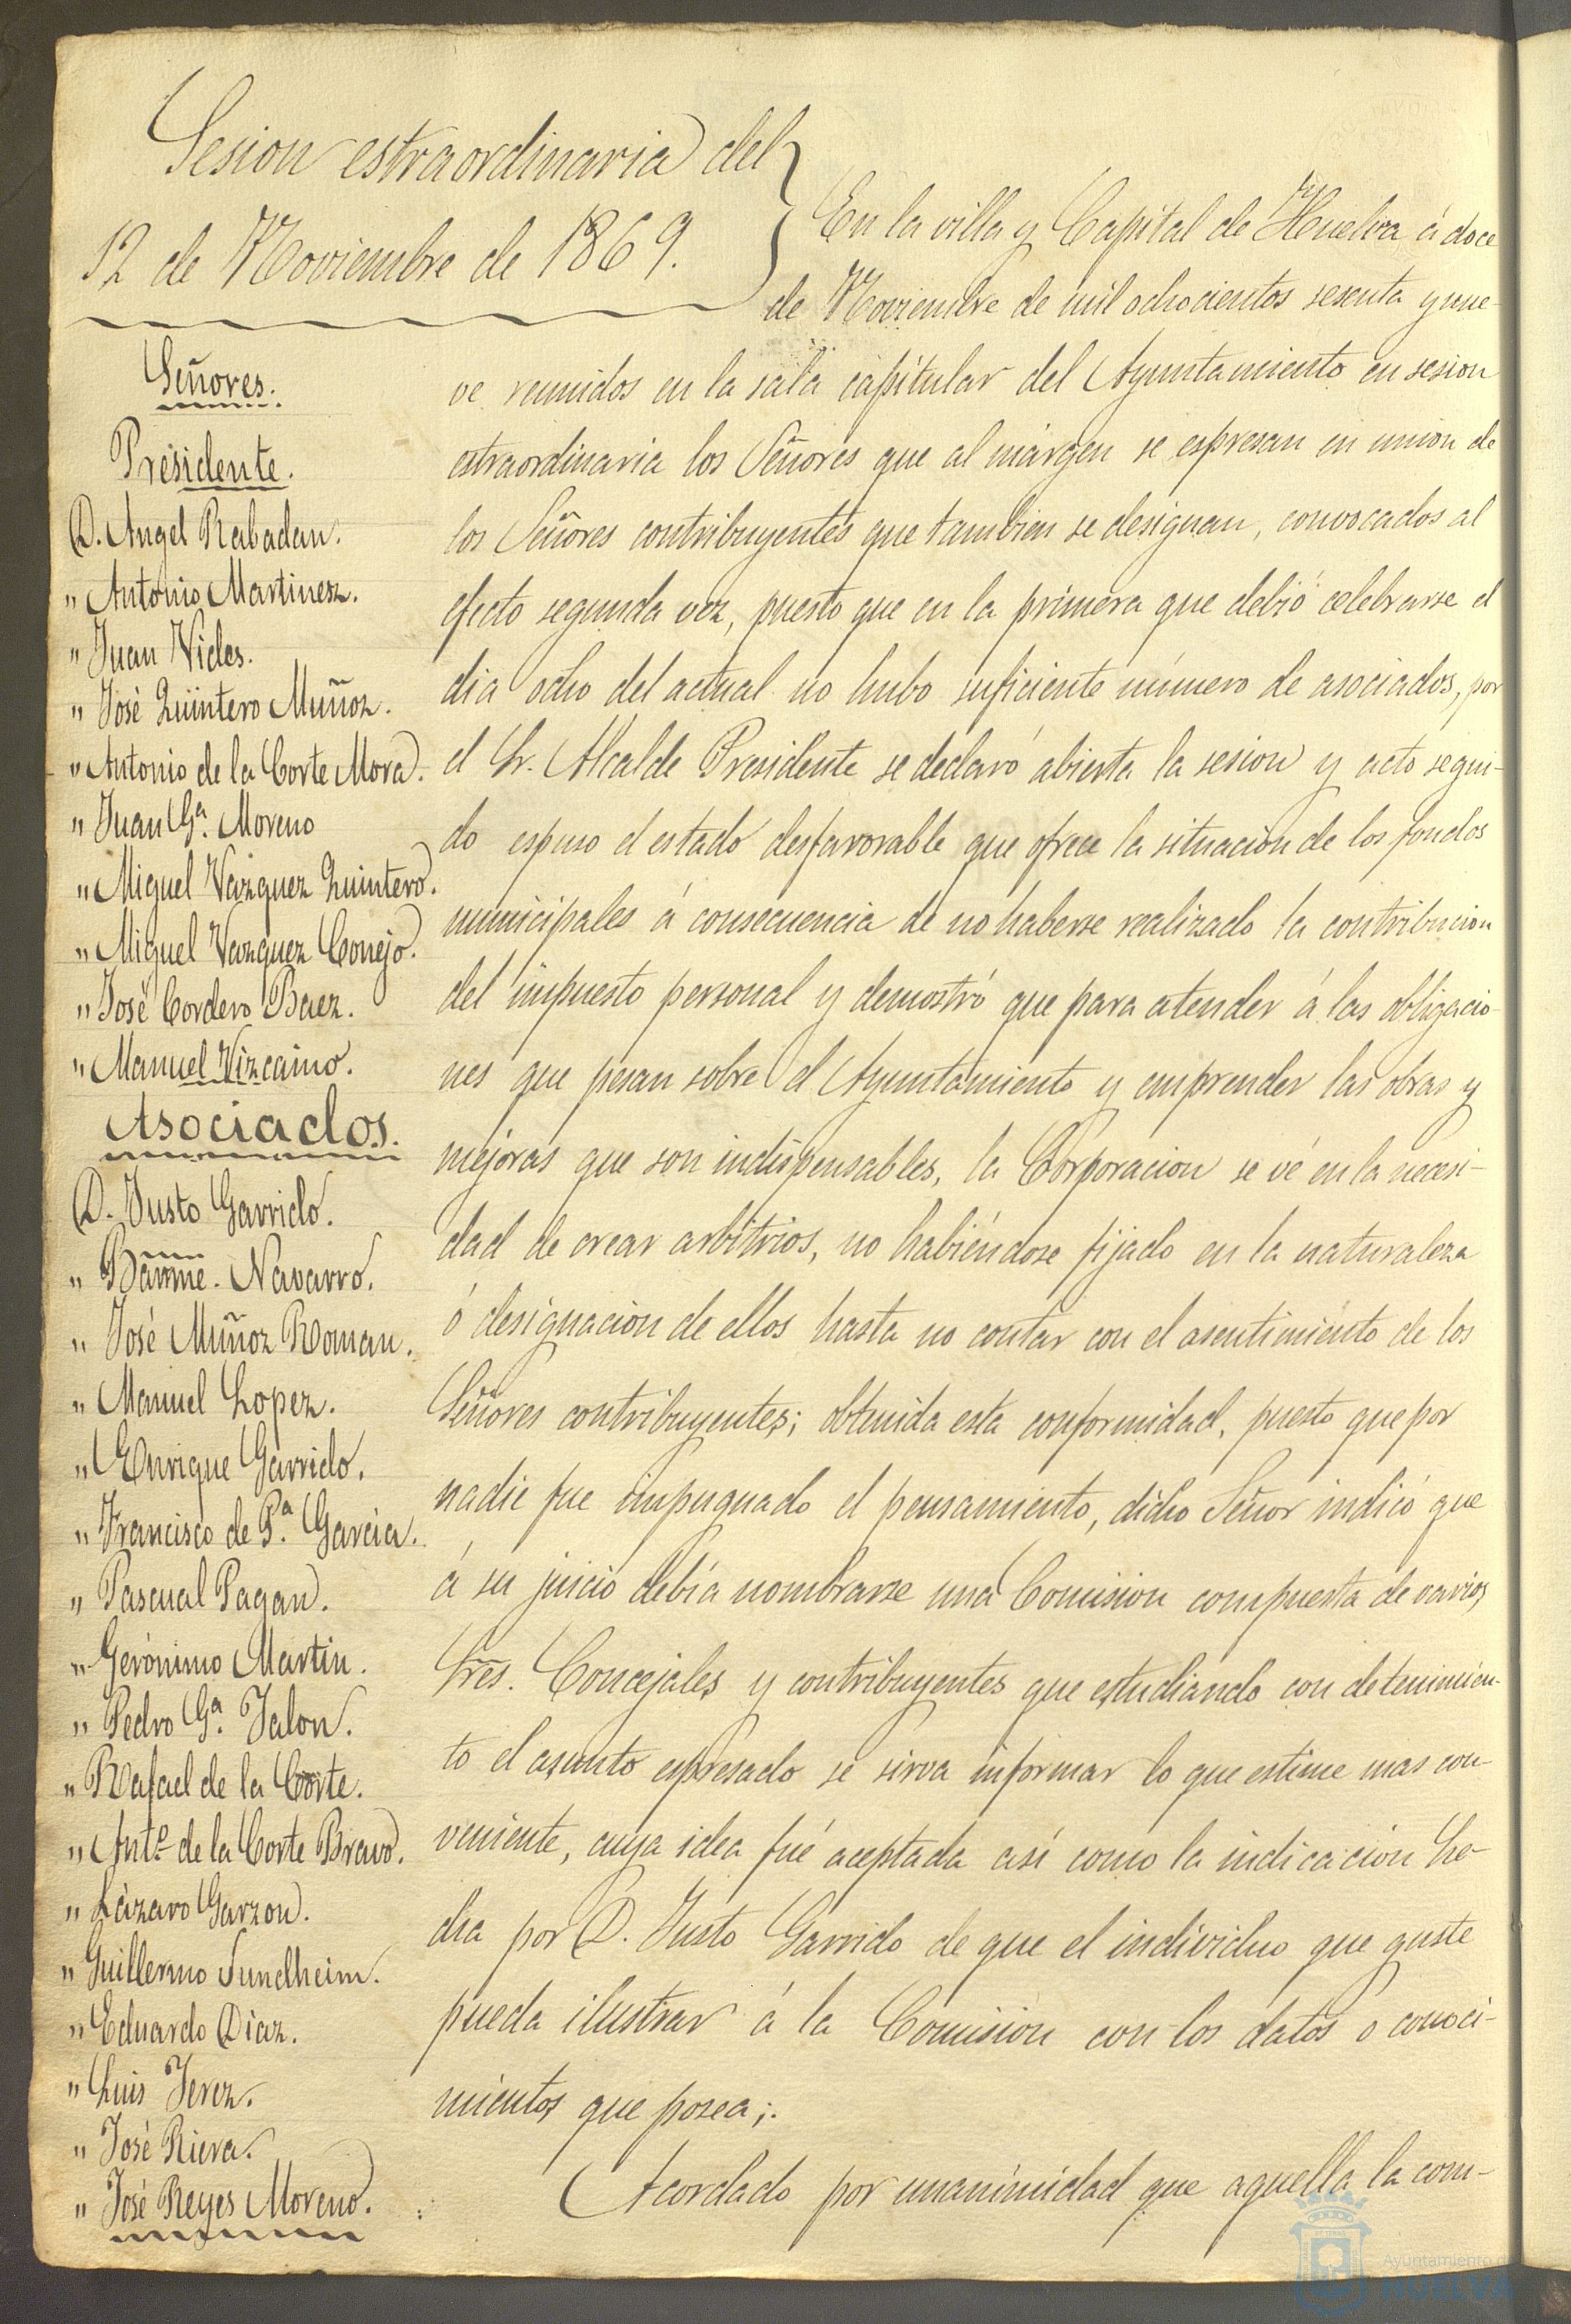 Sesion estraordinaria del
12 de Noviembre de 1869.
Señores.
Presidente.
D. Angel Rabadan.
" Antonio Martinez.
" Juan Vides.
" José Quintero Muñoz.
" Antonio de la Corte Mora.
" Juan Gª. Moreno
" Miguel Vazquez Quintero.
" Miguel Vazquez Conejo.
" José Cordero Baez.
" Manuel Vizcaino.
Asociados.
D. Justo Garrido.
" Bartme. Navarro.
" José Muñoz Roman.
" Manuel Lopez.
" Enrique Garrido.
" Francisco de Pª. Garcia.
" Pascual Pagan.
" Gerónimo Martin.
" Pedro Gª. Jalon.
" Rafael de la Corte.
" Antº. de la Corte Bravo.
" Lázaro Garzon.
" Guillermo Sundheim.
" Eduardo Diaz.
" Luis Jerez.
" José Riera.
" José Reyes Moreno.
En la villa y Capital de Huelva á doce
de Noviembre de mil ochocientos sesenta y nue-
ve reunidos en la sala capitular del Ayuntamiento en sesion
estraordinaria los Señores que al márgen se espresan en union de
los Señores contribuyentes que tambien se designan, convocados al
efecto segunda vez, puesto que en la primera que debió celebrarse el
dia ocho del actual no hubo suficiente número de asociados, por
el Sr. Alcalde Presidente se declaró abierta la sesion y acto segui-
do espuso el estado desfavorable que ofrece la situacion de los fondos
municipales á consecuencia de no haberse realizado la contribucion
del impuesto personal y demostró que para atender á las obligacio-
nes que pesan sobre el Ayuntamiento y emprender las obras y
mejoras que son indispensables, la Corporacion se vé en la necesi-
dad de crear arbitrios, no habiéndose fijado en la naturaleza
ó designacion de ellos hasta no contar con el asentimiento de los
Señores contribuyentes; obtenida esta conformidad, puesto que por
nadie fue impugnado el pensamiento, dicho Señor indicó que
á su juicio debía nombrarse una Comision compuesta de varios
Sres. Concejales y contribuyentes que estudiando con detenimien-
to el asunto espresado se sirva informar lo que estime mas con-
veniente, cuya idea fué aceptada así como la indicacion he-
cha por D. Justo Garrido de que el individuo que guste
pueda ilustrar á la Comision con los datos o conoci-
mientos que posea;.
Acordado por unanimidad que aquella la com-
Ayuntamiento de
HUELVA